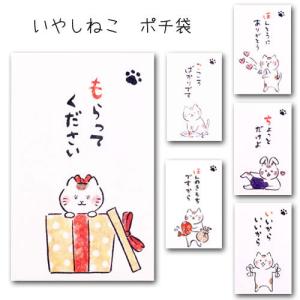 いやしねこ　ポチ袋
もらって
ください
こころ
ばかりですが
ほんとうに
ありがとう
ほんのきもち
ですから
ちょこっと
だけよ
いいから
いいから